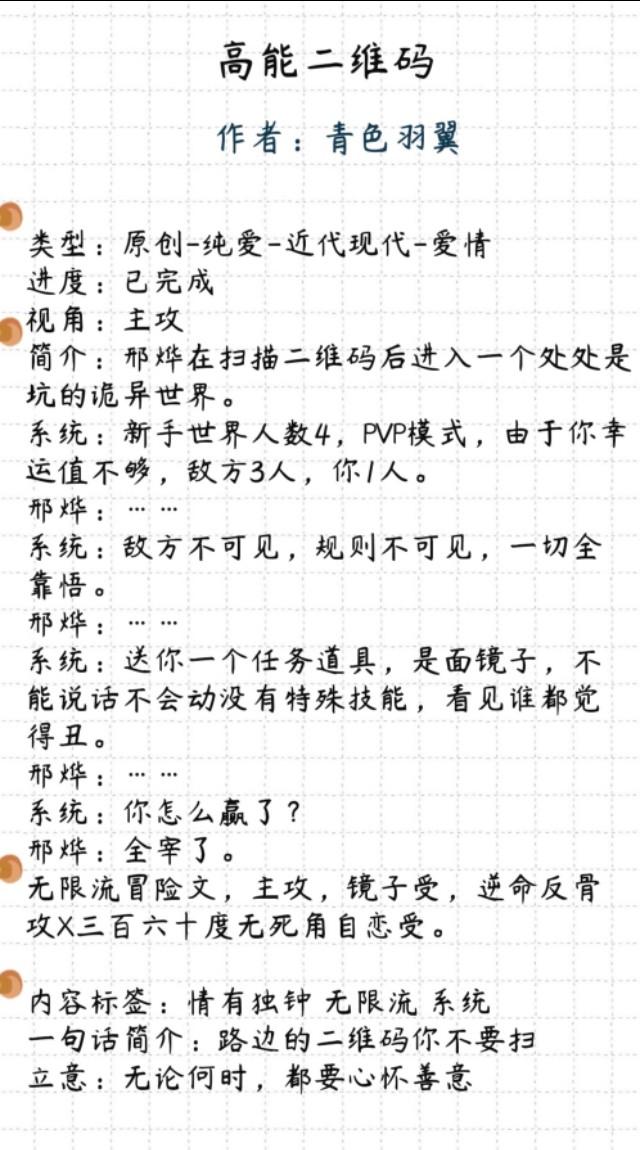 高能二维码
作者：青色羽翼
类型：原创-纯爱-近代现代-爱情
进度：已完成
视角：主攻
简介：邢烨在扫描二维码后进入一个处处是
坑的诡异世界。
系统：新手世界人数4，PVP模式，由于你幸
运值不够，敌方3人，你1人。
邢烨：… …
系统：敌方不可见，规则不可见，一切全
靠悟。
邢烨：… …
系统：送你一个任务道具，是面镜子，不
能说话不会动没有特殊技能，看见谁都觉
得丑。
邢烨：… …
系统：你怎么赢了？
邢烨：全宰了。
无限流冒险文，主攻，镜子受，逆命反骨
攻X三百六十度无死角自恋受。
内容标签：情有独钟 无限流 系统
一句话简介：路边的二维码你不要扫
立意：无论何时，都要心怀善意